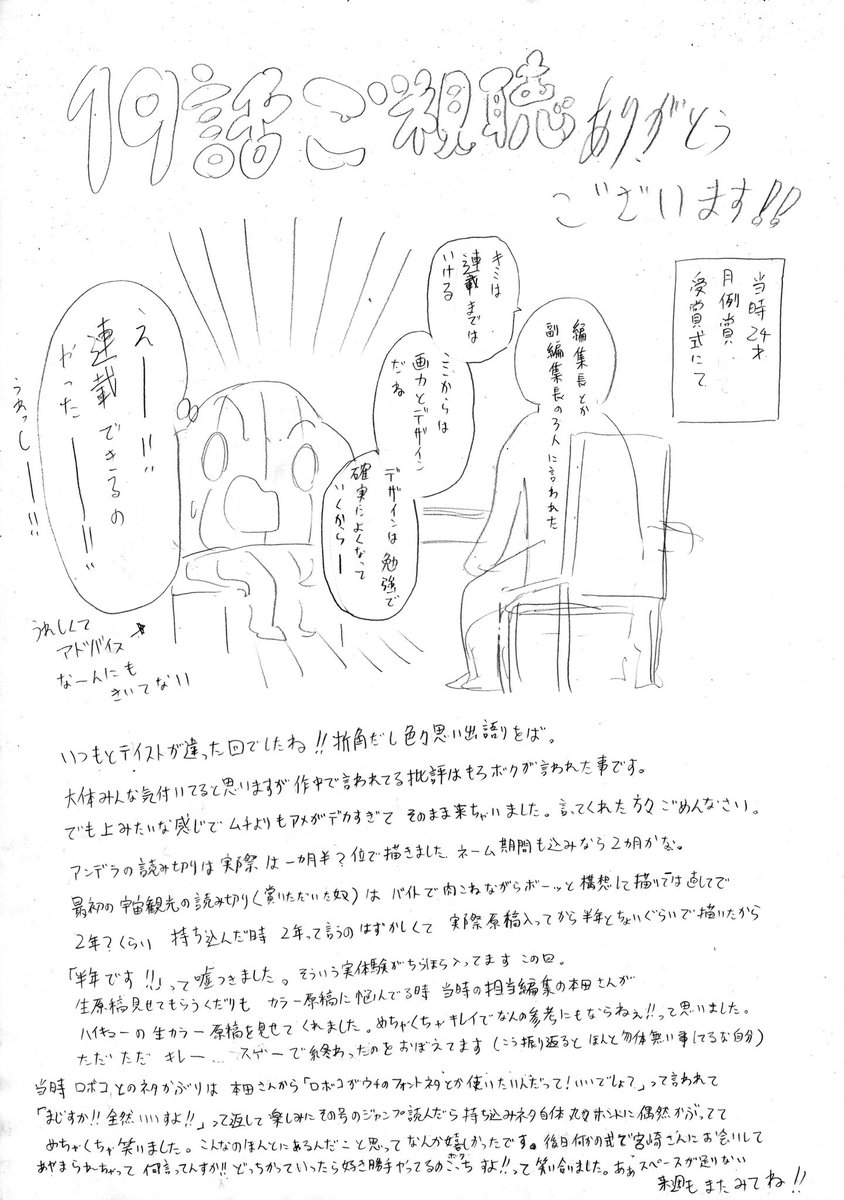 19話ご視聴ありがとう
ございます!!
当時24才
月例賞
受賞式にて
編集長とか
副編集長の3人に言われた
キミは
連載までは
いける
ここからは
画力とデザイン
だね
デザインは勉強で
確実によくなって
いくからー
えー!!
連載できるの
やったーー!!
うれっしーー!!
うれしくて
アドバイス
なーんにも
きいてない
いつもとテイストが違った回でしたね!!折角だし色々思い出語りをば。
大体みんな気付いてると思いますが作中で言われてる批評はもろボクが言われた事です。
でも上みたいな感じでムチよりもアメがデカすぎてそのまま来ちゃいました。言ってくれた方々ごめんなさい。
アンデラの読み切りは実際は一か月半?位で描きました ネーム期間も込みなら2カ月かな。
最初の宇宙観光の読み切り(賞いただいた奴)はバイトで肉こねながらボーッと構想して描いては直してで
2年?くらい 持ち込んだ時 2年って言うのはずかしくて 実際原稿入ってから半年とちょいぐらいで描いたから
「半年です!!」って嘘つきました。そういう実体験がちらほら入ってます この回。
生原稿見せてもらうくだりも カラー原稿に悩んでる時 当時の担当編集の本田さんが
ハイキューの生カラー原稿を見せてくれました。めちゃくちゃキレイでなんの参考にもならねぇ!!って思いました。
ただただ キレー… スゲーで終わったのをおぼえてます(こう振り返るとほんと勿体無い事してるな自分)
当時 ロボコとのネタかぶりは 本田さんから「ロボコがウチのフォントネタとか使いたいんだって!いいでしょ?」って言われて
「まじすか!!全然いいすよ!!」って返して楽しみにその号のジャンプ読んだら持ち込みネタ自体丸々ホントに偶然かぶってて
めちゃくちゃ笑いました。こんなのほんとにあるんだこと思ってなんか嬉しかったです。後日何かの式で宮崎さんにお会いして
あやまられちゃって 何言ってんすか!!どっちかっていったら好き勝手やってるのこっちすよ!!って笑い合いました。あぁスペースが足りない
来週もまたみてね!!